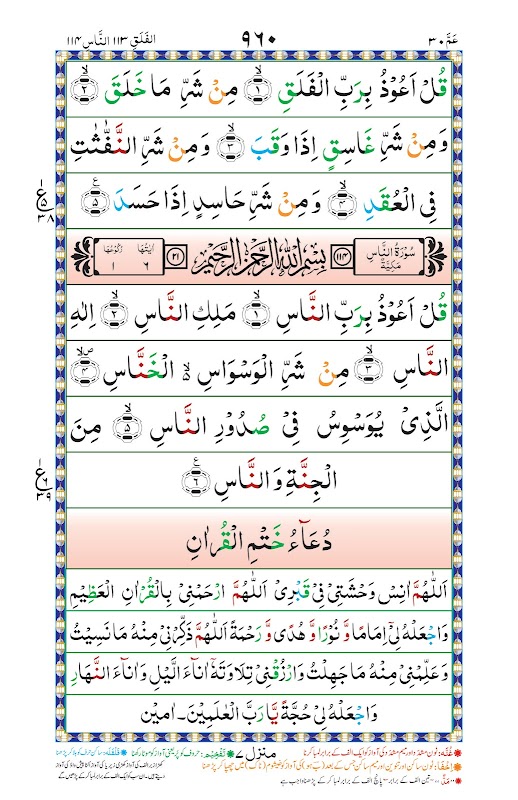 عَمَّ ٣٠ ٩٦٠ الفلق ١١٣ الناس ١١٤
قُلْ اَعُوْذُ بِرَبِّ الْفَلَقِ ۙ‏﴿۱﴾ مِنْ شَرِّ مَا خَلَقَ ۙ‏﴿۲﴾
وَمِنْ شَرِّ غَاسِقٍ اِذَا وَقَبَ ۙ‏﴿۳﴾ وَمِنْ شَرِّ النَّفّٰثٰتِ
فِى الْعُقَدِ ۙ‏﴿۴﴾ وَمِنْ شَرِّ حَاسِدٍ اِذَا حَسَدَ ﴿۵﴾
ع ۵ ٣٨
سُوْرَةُ النَّاسِ مَكِّيَّةٌ ﴿١١٤﴾ بِسْمِ اللهِ الرَّحْمٰنِ الرَّحِيْمِ ﴿٢١﴾ اٰيٰتُهَا ٦ رُكُوْعُهَا ١
قُلْ اَعُوْذُ بِرَبِّ النَّاسِ ۙ‏﴿۱﴾ مَلِكِ النَّاسِ ۙ‏﴿۲﴾ اِلٰهِ
النَّاسِ ۙ‏﴿۳﴾ مِنْ شَرِّ الْوَسْوَاسِ ۙ الْخَنَّاسِ ۙ‏﴿۴﴾
الَّذِىْ يُوَسْوِسُ فِىْ صُدُوْرِ النَّاسِ ۙ‏﴿۵﴾ مِنَ
الْجِنَّةِ وَالنَّاسِ ﴿۶﴾
ع ٦ ٣٩
دُعَآءُ خَتْمِ الْقُرْاٰنِ
اَللّٰهُمَّ اٰنِسْ وَحْشَتِىْ فِىْ قَبْرِىْ اَللّٰهُمَّ ارْحَمْنِىْ بِالْقُرْاٰنِ الْعَظِيْمِ
وَاجْعَلْهُ لِىْٓ اِمَامًا وَّ نُوْرًا وَّ هُدًى وَّ رَحْمَةً اَللّٰهُمَّ ذَكِّرْنِىْ مِنْهُ مَا نَسِيْتُ
وَعَلِّمْنِىْ مِنْهُ مَا جَهِلْتُ وَارْزُقْنِىْ تِلَاوَتَهٗٓ اٰنَآءَ الَّيْلِ وَاٰنَآءَ النَّهَارِ
وَاجْعَلْهُ لِىْ حُجَّةً يَّا رَبَّ الْعٰلَمِيْنَ۔ اٰمِيْن
منزل ٧